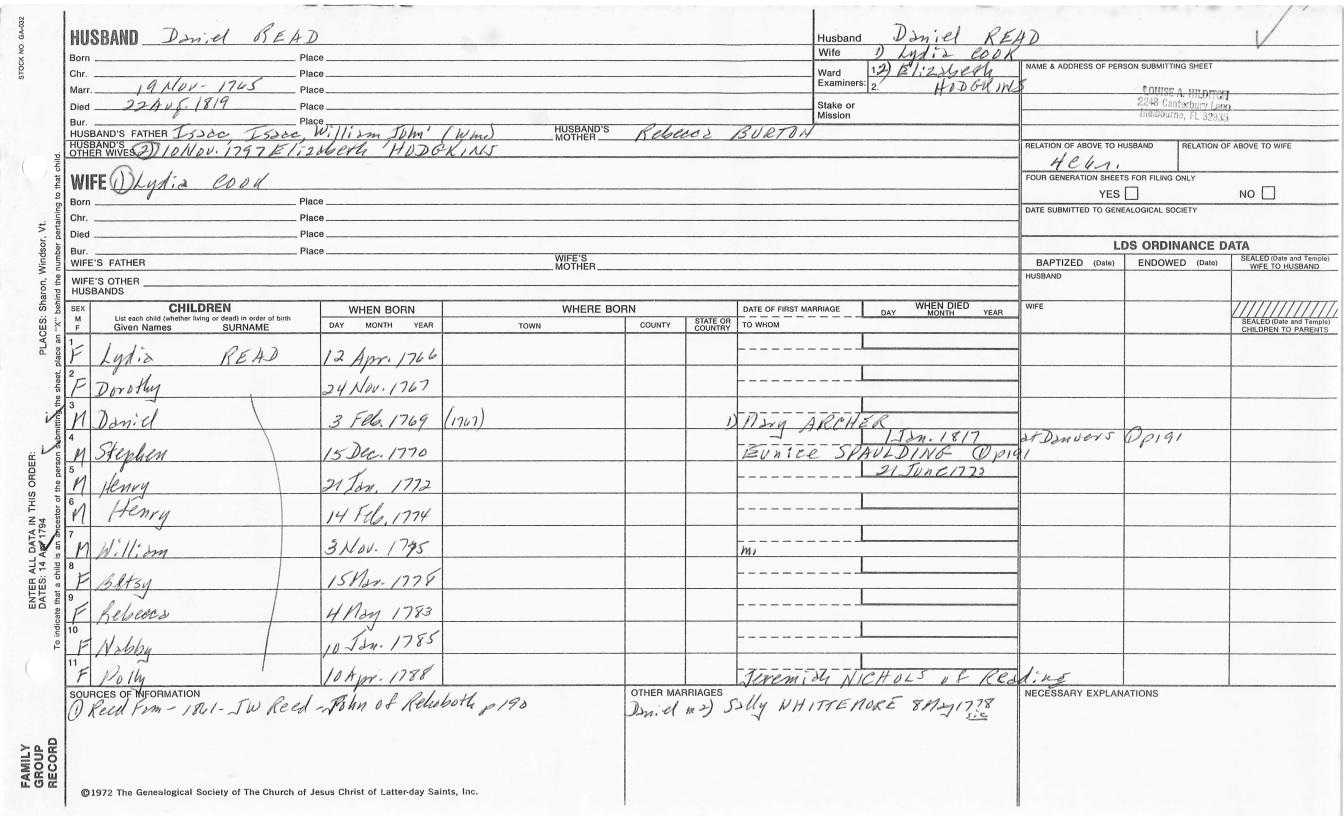 STOCK NO. GA-032
HUSBAND Daniel READ
Born Place
Chr. Place
Marr. 19 Nov. 1765 Place
Died 22 Aug. 1819 Place
Bur. Place
HUSBAND'S FATHER Isaac, Isaac, William John' (Wm) HUSBAND'S MOTHER Rebecca BURTON
HUSBAND'S OTHER WIVES (2) 10 Nov. 1797 Elizabeth HODGKINS
WIFE (1) Lydia COOK
Born Place
Chr. Place
Died Place
Bur. Place
WIFE'S FATHER WIFE'S MOTHER
WIFE'S OTHER HUSBANDS
Husband Daniel READ
Wife 1) Lydia COOK
Ward Examiners: 1. 2) Elizabeth
2. HODGKINS
Stake or Mission
NAME & ADDRESS OF PERSON SUBMITTING SHEET
LOUISE A. HILDITCH
2248 Canterbury Lane
Melbourne, FL 32935
RELATION OF ABOVE TO HUSBAND RELATION OF ABOVE TO WIFE
FOUR GENERATION SHEETS FOR FILING ONLY
YES NO
DATE SUBMITTED TO GENEALOGICAL SOCIETY
LDS ORDINANCE DATA
BAPTIZED (Date) ENDOWED (Date) SEALED (Date and Temple) WIFE TO HUSBAND
HUSBAND
WIFE
SEALED (Date and Temple) CHILDREN TO PARENTS
SEX M F CHILDREN WHEN BORN WHERE BORN DATE OF FIRST MARRIAGE WHEN DIED
List each child (whether living or dead) in order of birth
Given Names SURNAME DAY MONTH YEAR TOWN COUNTY STATE OR COUNTRY TO WHOM DAY MONTH YEAR
1 F Lydia READ 12 Apr. 1766
2 F Dorothy 24 Nov. 1767
3 M Daniel 3 Feb. 1769 (1767) 1) Mary ARCHER
1 Jan. 1817 at Danvers (1) p191
4 M Stephen 15 Dec. 1770 Eunice SPAULDING (1) p191
21 June 1772
5 M Henry 21 Jan. 1772
6 M Henry 14 Feb. 1774
7 M William 3 Nov. 1775 m.
8 F Betsy 15 Mar. 1778
9 F Rebecca 4 May 1783
10 F Nabby 10 Jan. 1785
11 F Polly 10 Apr. 1788 Jeremiah NICHOLS of Reading
SOURCES OF INFORMATION
(1) Reed Fam - 1861 - JW Reed - John of Rehoboth p190
OTHER MARRIAGES
Daniel m 2) Sally WHITTEMORE 8 May 1778
sic
NECESSARY EXPLANATIONS
©1972 The Genealogical Society of The Church of Jesus Christ of Latter-day Saints, Inc.
FAMILY GROUP RECORD
ENTER ALL DATA IN THIS ORDER:
DATES: 14 Apr 1794
PLACES: Sharon, Windsor, Vt.
To indicate that a child is an ancestor of the person submitting the sheet, place an "X" behind the number pertaining to that child.